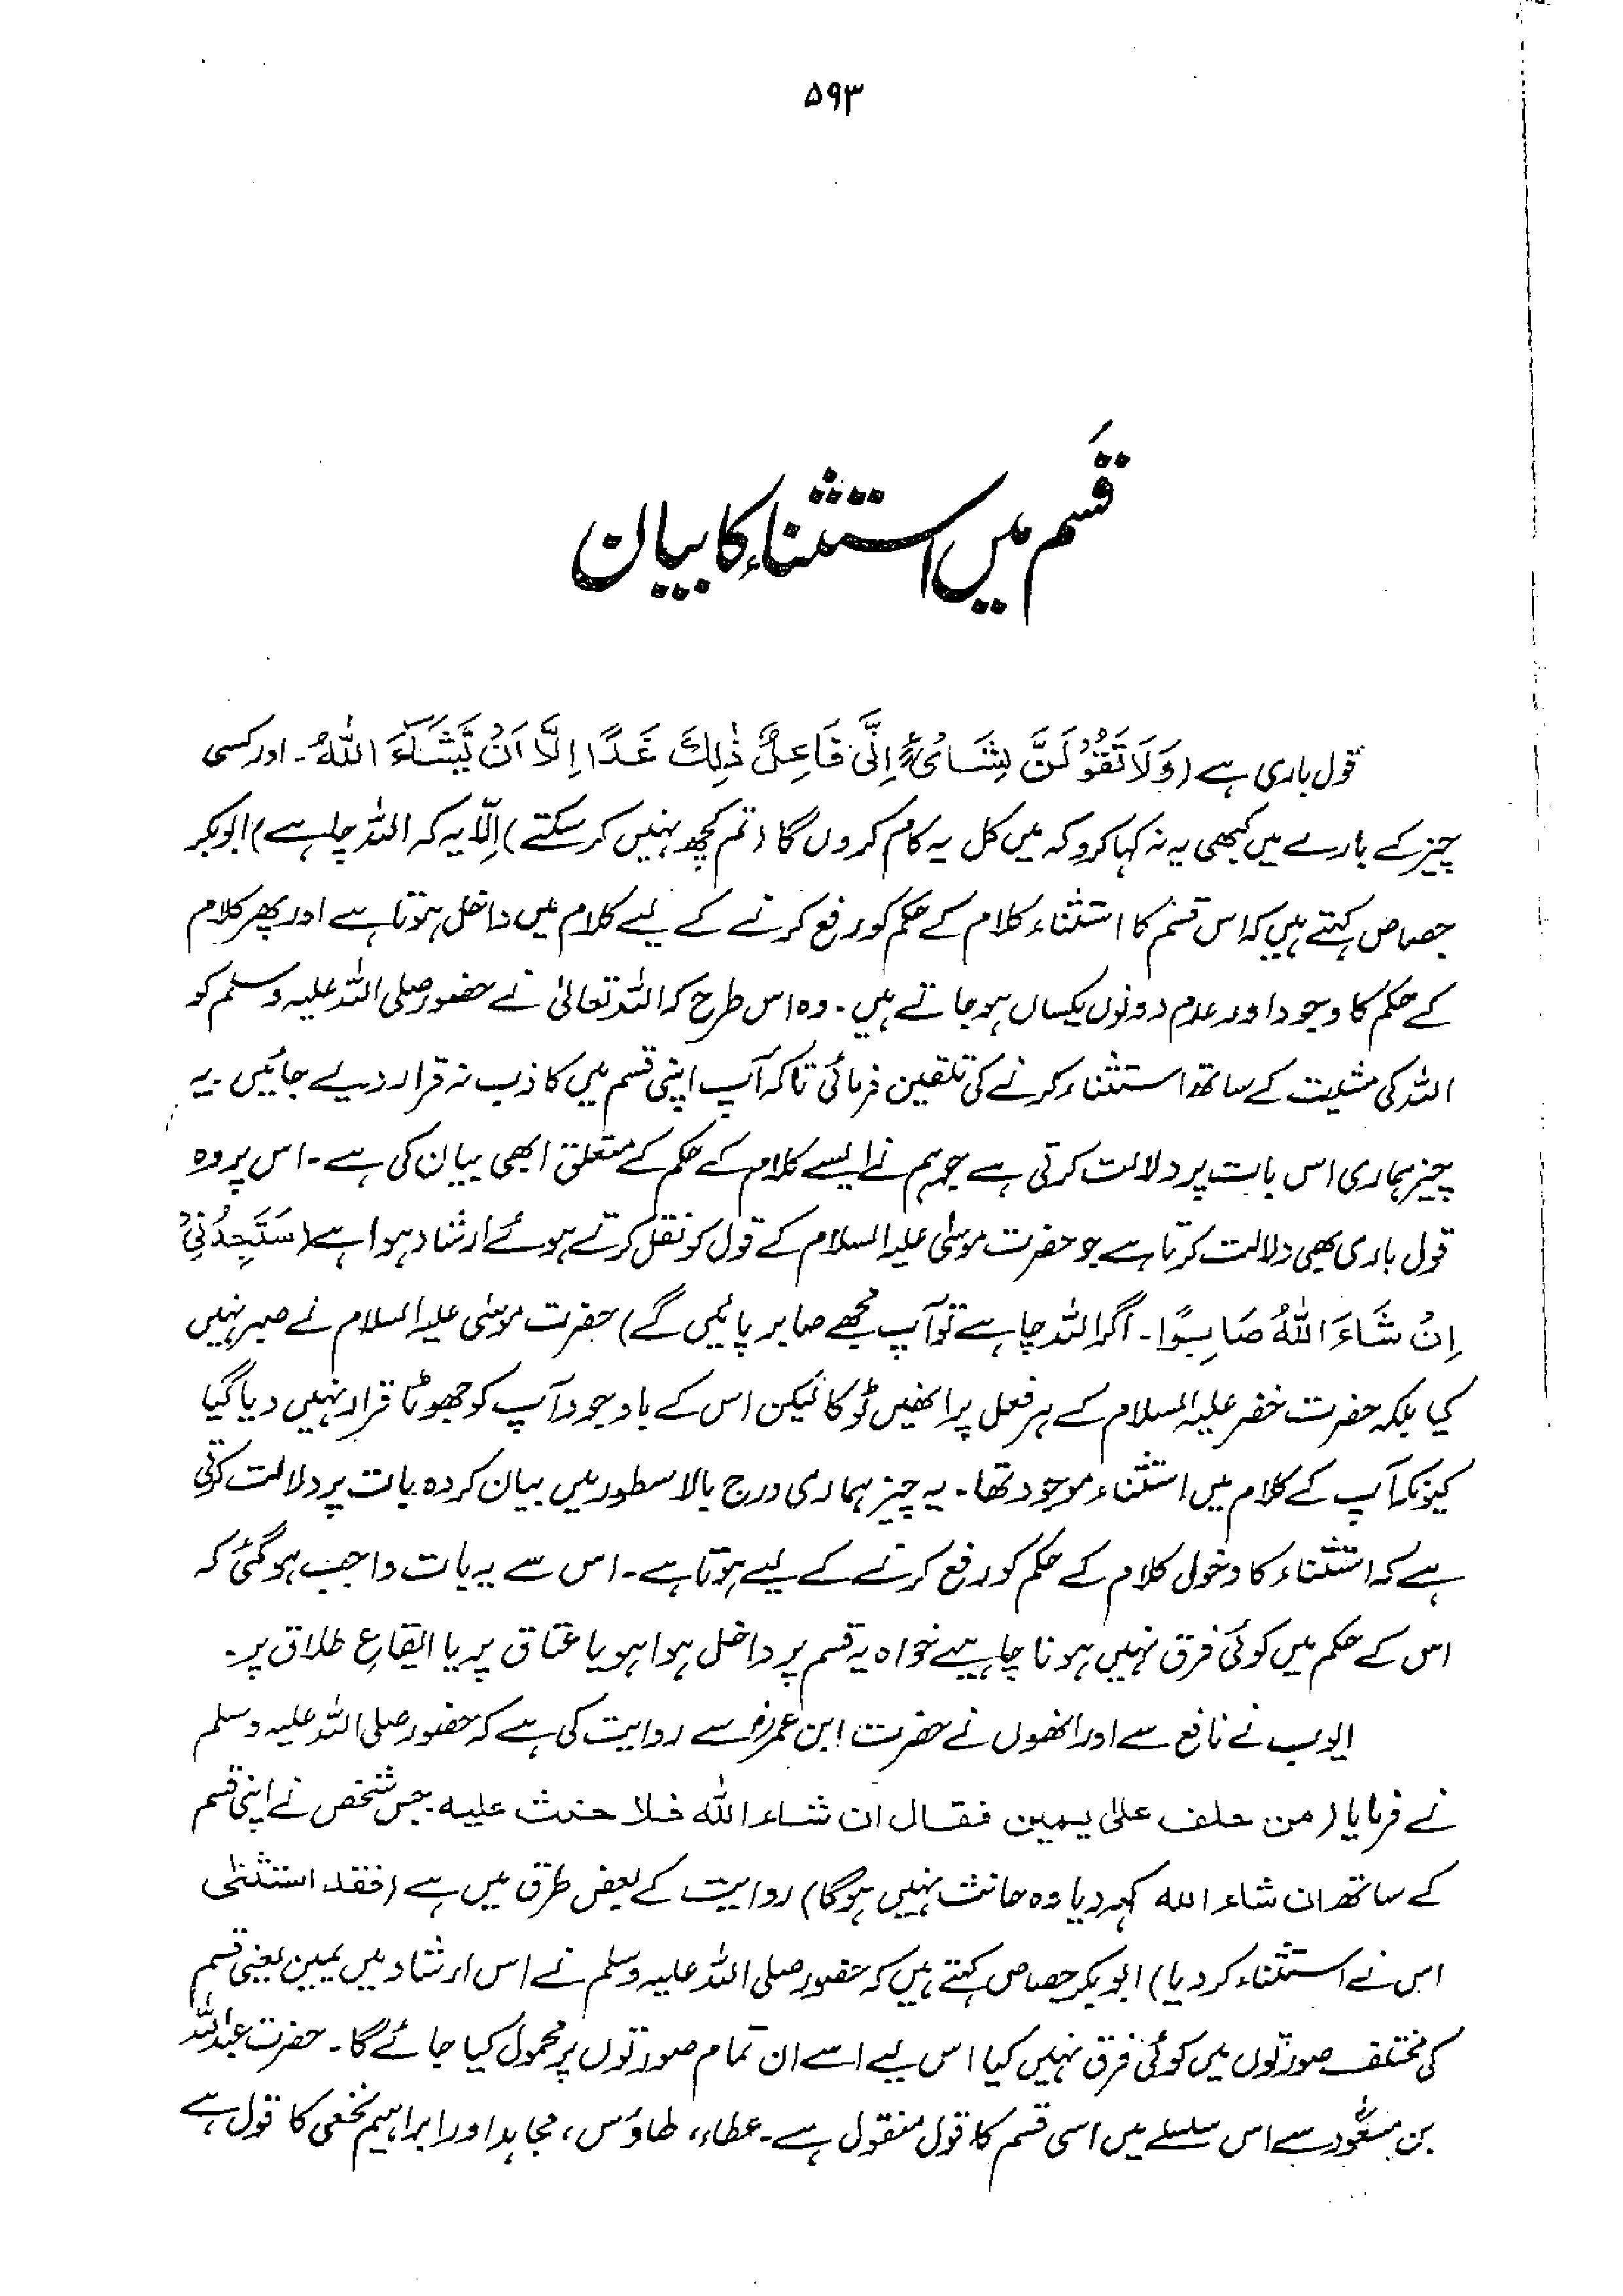 ۵۹۳
قَسم میں استثناء کا بیان
قول باری ہے (وَلَا تَقُوْلَنَّ لِشَایْءٍ اِنِّیْ فَاعِلٌ ذٰلِكَ غَدًا اِلَّا اَنْ یَّشَآءَ اللّٰهُ۔ اور کسی
چیز کے بارے میں کبھی یہ نہ کہا کرو کہ میں کل یہ کام کروں گا (تم کچھ نہیں کر سکتے) اِلّا یہ کہ اللہ چاہے) ابوبکر
جصاص کہتے ہیں کہ اس قسم کا استثناء کلام کے حکم کو رفع کرنے کے لیے کلام میں داخل ہوتا ہے اور پھر کلام
کے حکم کا وجود اور عدم دونوں یکساں ہو جاتے ہیں۔ وہ اس طرح کہ اللہ تعالیٰ نے حضور صلی اللہ علیہ وسلم کو
اللہ کی مشیت کے ساتھ استثناء کرنے کی تلقین فرمائی تاکہ آپ اپنی قسم میں کاذب نہ قرار دیے جائیں۔ یہ
چیز ہماری اس بات پر دلالت کرتی ہے جو ہم نے ایسے کلام کے حکم کے متعلق ابھی بیان کی ہے۔ اس پر وہ
قول باری بھی دلالت کرتا ہے جو حضرت موسیٰ علیہ السلام کے قول کو نقل کرتے ہوئے ارشاد ہوا ہے (سَتَجِدُنِیْ
اِنْ شَاءَ اللّٰهُ صَابِرًا۔ اگر اللہ چاہے تو آپ مجھے صابر پائیں گے) حضرت موسیٰ علیہ السلام نے صبر نہیں
کیا بلکہ حضرت خضر علیہ السلام کے ہر فعل پر انھیں ٹوکا لیکن اس کے باوجود آپ کو جھوٹا قرار نہیں دیا گیا
کیونکہ آپ کے کلام میں استثناء موجود تھا۔ یہ چیز ہماری درج بالا سطور میں بیان کردہ بات پر دلالت کرتی
ہے کہ استثناء کا دخول کلام کے حکم کو رفع کرنے کے لیے ہوتا ہے۔ اس سے یہ بات واجب ہو گئی کہ
اس کے حکم میں کوئی فرق نہیں ہونا چاہیے خواہ یہ قسم پر داخل ہوا ہو یا عتاق پر یا ایقاعِ طلاق پر۔
ایوب نے نافع سے اور انھوں نے حضرت ابن عمرؓ سے روایت کی ہے کہ حضور صلی اللہ علیہ وسلم
نے فرمایا (من حلف علیٰ یمین فقال ان شاء اللّٰه فلا حنث علیه۔ جس شخص نے اپنی قسم
کے ساتھ ان شاء اللہ کہہ دیا وہ حانث نہیں ہوگا) روایت کے بعض طرق میں ہے (فقد استثنٰی
اس نے استثناء کر دیا) ابوبکر جصاص کہتے ہیں کہ حضور صلی اللہ علیہ وسلم نے اس ارشاد میں یمین یعنی قسم
کی مختلف صورتوں میں کوئی فرق نہیں کیا اس لیے اسے ان تمام صورتوں پر محمول کیا جائے گا۔ حضرت عبداللہ
بن مسعودؓ سے اس سلسلے میں اسی قسم کا قول منقول ہے۔ عطاء، طاؤس، مجاہد اور ابراہیم نخعی کا قول ہے